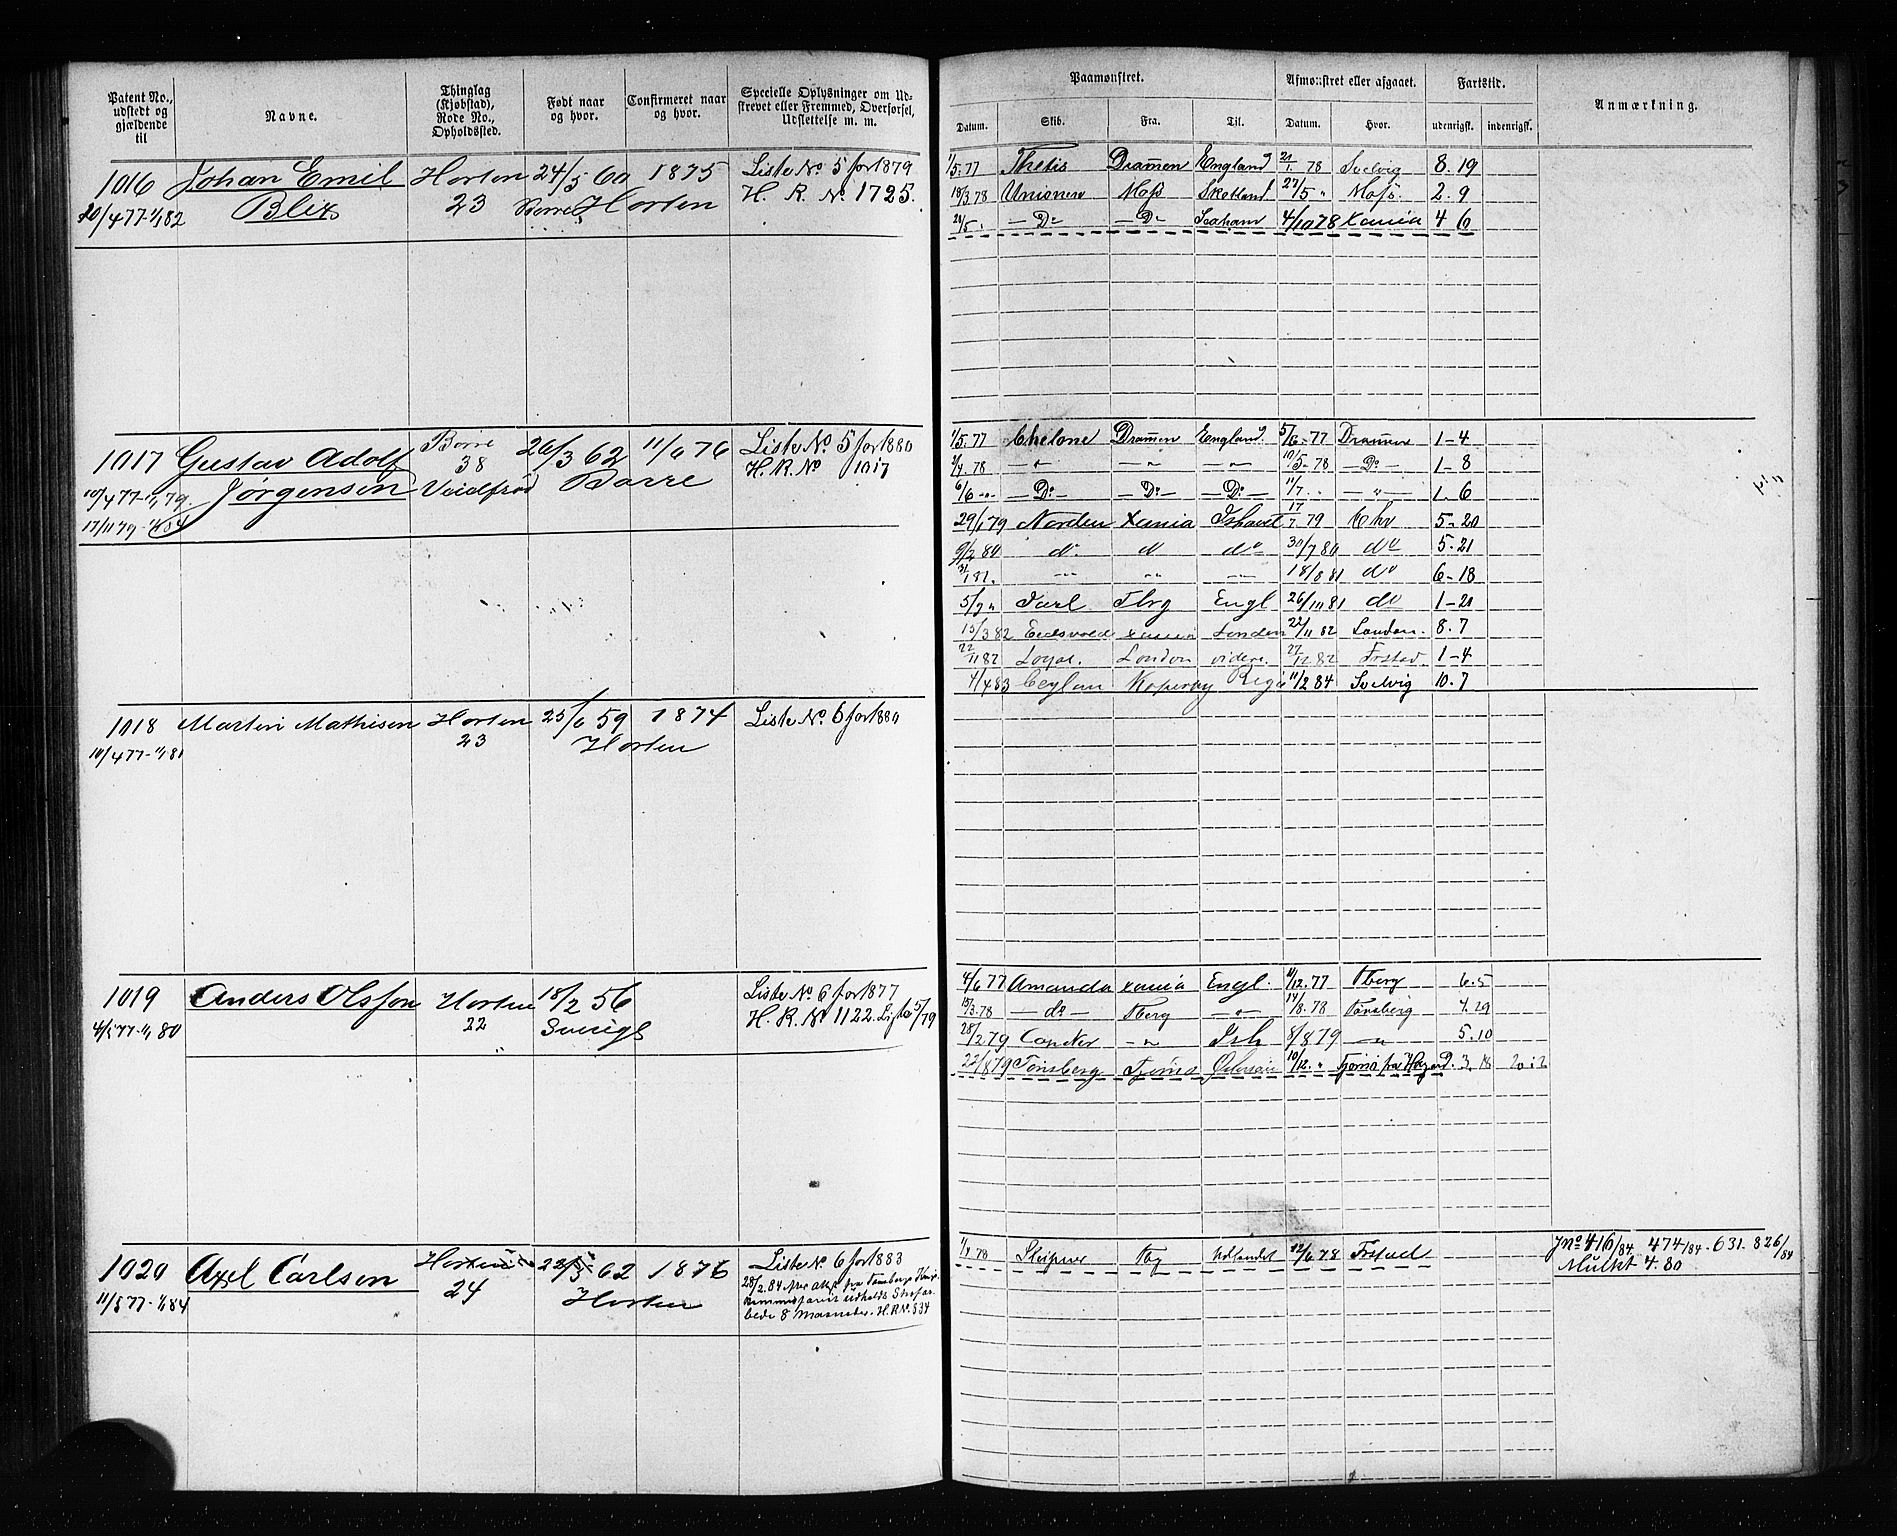 Patent No., udstedt og gjældende til
Navne.
Thinglag (Kjøbstad), Rode No., Opholdssted.
Født naar og hvor.
Confirmeret naar og hvor.
Specielle Oplysninger om Udskrevet eller Fremmed, Overførsel, Udslettelse m. m.
Paamønstret.
Afmønstret eller afgaaet.
Fartstid.
Anmærkning.
Datum. Skib. Fra. Til. Datum. Hvor. udenrigsk. indenrigsk.
1016 Johan Emil Horten 24/5 60 1875 Liste No 5 for 1879
Blix 23 Borre Horten H. R. No 1725.
1/5.77 Thetis Drammen England 21/1. 78 Svelvig 8. 19
18/3.78 Unionen Moss Skotland 27/5 " Moss. 2. 9
— Do — — Do Seaham 4/10 78 Xania 4 6
1017 Gustav Adolf Borre 38 26/3 62 11/6 76 Liste No 5 for 1880
10/4 77-1/1 79 Jørgensen Borre H. R. No 1017
17/11 79-1/1 84
1/5.77 Drammen England 5/6-77 Drammen 1-4
2/4.78 — " — — " — — " — 10/5-78 — Do — 1-8
6/6 — Do — — Do — — Do — 11/7 — " — 1. 6
29/1 79 Norden Xania Ishavet 17/7. 79 Chr 5-20
9/2 80 do do do 30/7 80 do 5. 21
18/8 81 do 6-18
5/9 " Jarl Tbrg Engl 26/10 81 do 1-21
15/3 82 Eidsvold Xania London 22/11 82 London. 8. 7
22/11 82 Loyal. London videre. 27/12 82 Frstad. 1-4
4/4 83 Ceylon 11/2 84 Svelvig 10. 7
1018 Martin Mathisen Horten 25/6 59 1874 Liste No. 6 for 1880
10/4 77-1/1 81 23 Horten
1019 Anders Olsson Horten 18/2 56 Liste No 6 for 1877
4/5 77-1/1 80 22 Sverige H. R. No 1122. Liste 5/79
4/6 77 Amanda Xania Engl. 11/12.77 Tberg 6. 5
15/3.78 — do — Tberg — " — 14/8.78 Tønsberg 4. 29
28/2 79 Condor — " Ish 8/8 79 — " 5. 10
22/8 79 Tønsberg Tjømø Østersøen 10/12. "
1020 Axel Carlsen Horten 62 1876 Liste No 6 for 1883
11/8 77-1/1 84 24 Horten
1/4.78 Sleipner Tbg Hollandet 12/6 78 Frstad
Jno 416/84 474/84. 631. 826/84
Mulkt 4.80